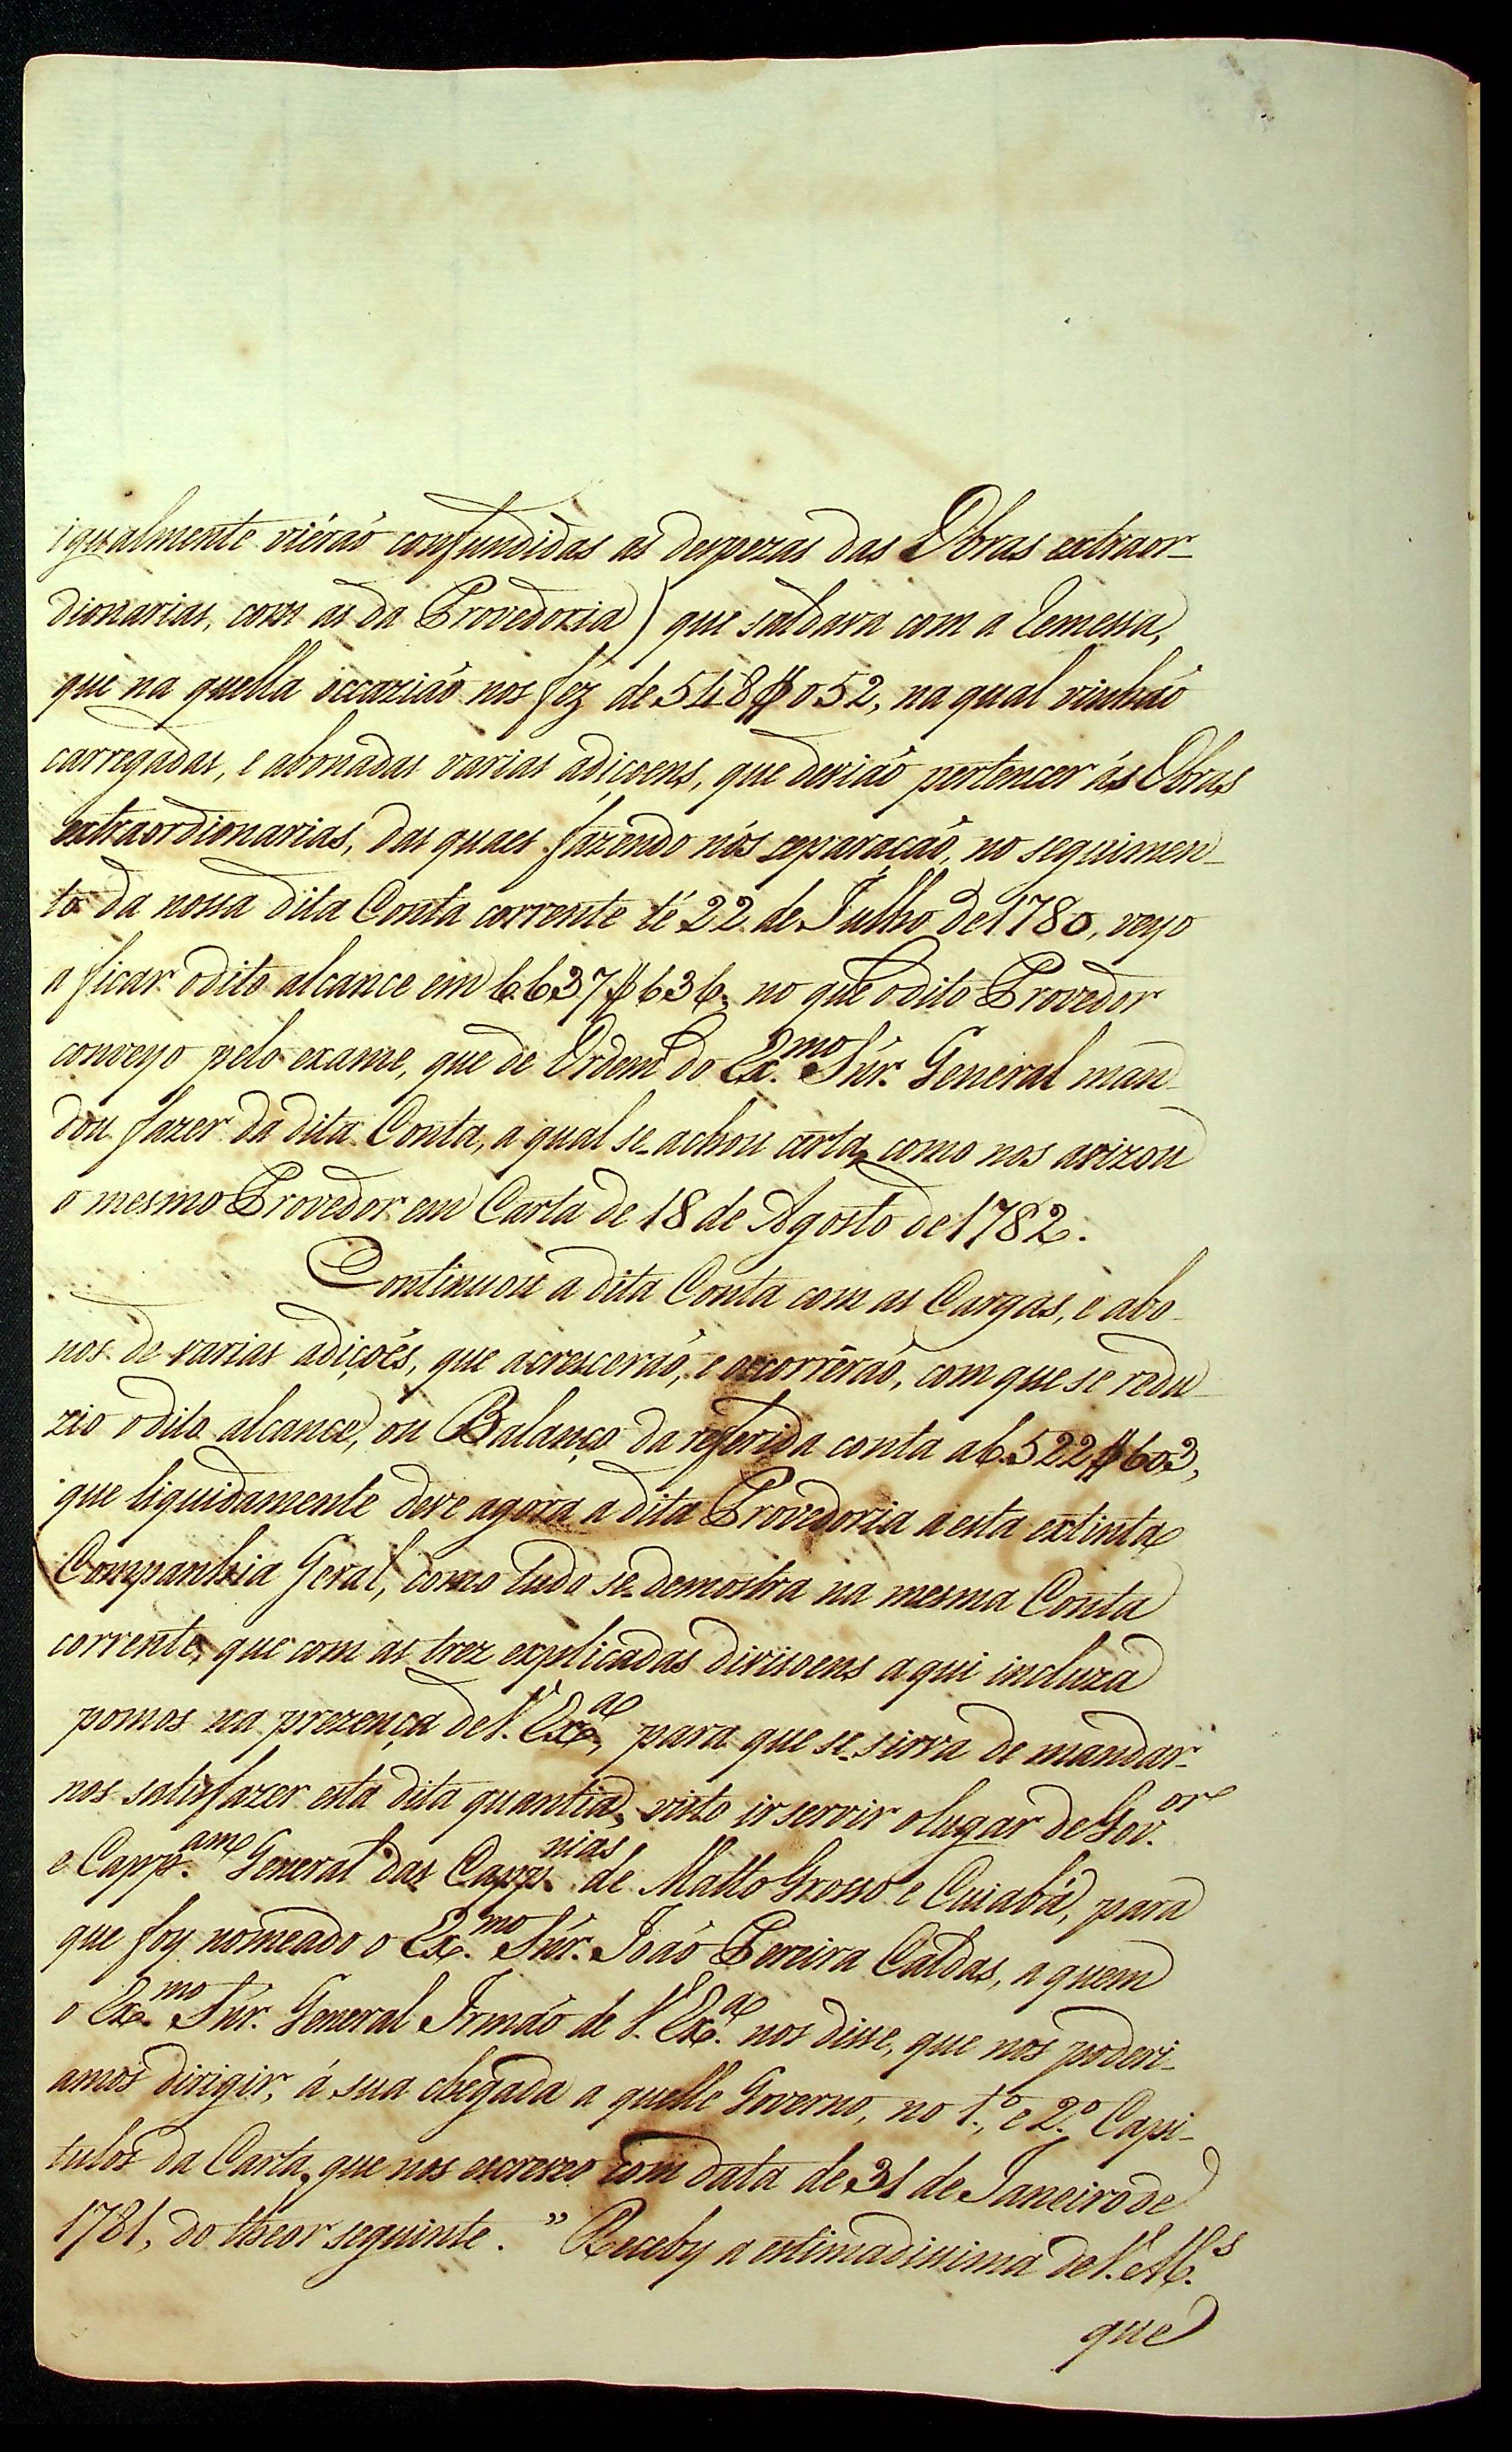 igualmente viérão confundidas as despezas das Obras extraor-
dionarias, com as da Provedoria) que saldava com a Remessa,
que na quella occazião nos fez de 548$052, na qual vinhão
carregadas, e abonadas varias adiçoens, que devião pertencer ás Obras
extraordionarias, das quaes fazendo nós separação, no seguimen-
to da nossa dita Conta corrente té 22 de Julho de 1780, veyo
a ficar o dito alcance em 6.637$636, no que o dito Provedor
conveyo pelo exame, que de Ordem do Ex.mo Snr. General man-
dou fazer da dita Conta, a qual se achou certa, como nos avizou
o mesmo Provedor em Carta de 18 de Agosto de 1782.
Continuou a dita Conta com as Cargas, e abo-
nos de varias adiçoẽs, que acrescerão, e occorrêrão, com que se redu-
zio o dito alcance, ou Balanço da referida conta a 6.522$603,
que liquidamente deve agora a dita Provedoria a esta extinta
Companhia Geral, como tudo se demostra na mesma Conta
corrente, que com as trez explicadas divisoens aqui incluza
pomos na prezença de V. Ex.a, para que se sirva de mandar-
nos satisfazer esta dita quantia, visto ir servir o lugar de Gov.or
e Capp.am General das Capp.nias de Matto Grosso e Cuiabá, para
que foy nomeado o Ex.mo Snr. João Pereira Caldas, a quem
o Ex.mo Snr. General Irmão de V. Ex.a nos disse, que nos poderi-
amos dirigir, á sua chegada a quelle Governo, no 1.º, e 2.º Capi-
tulos da Carta, que nos escreveo com data de 31 de Janeiro de
1781, do theor seguinte. " Receby a estimadissima de V. M.s
que